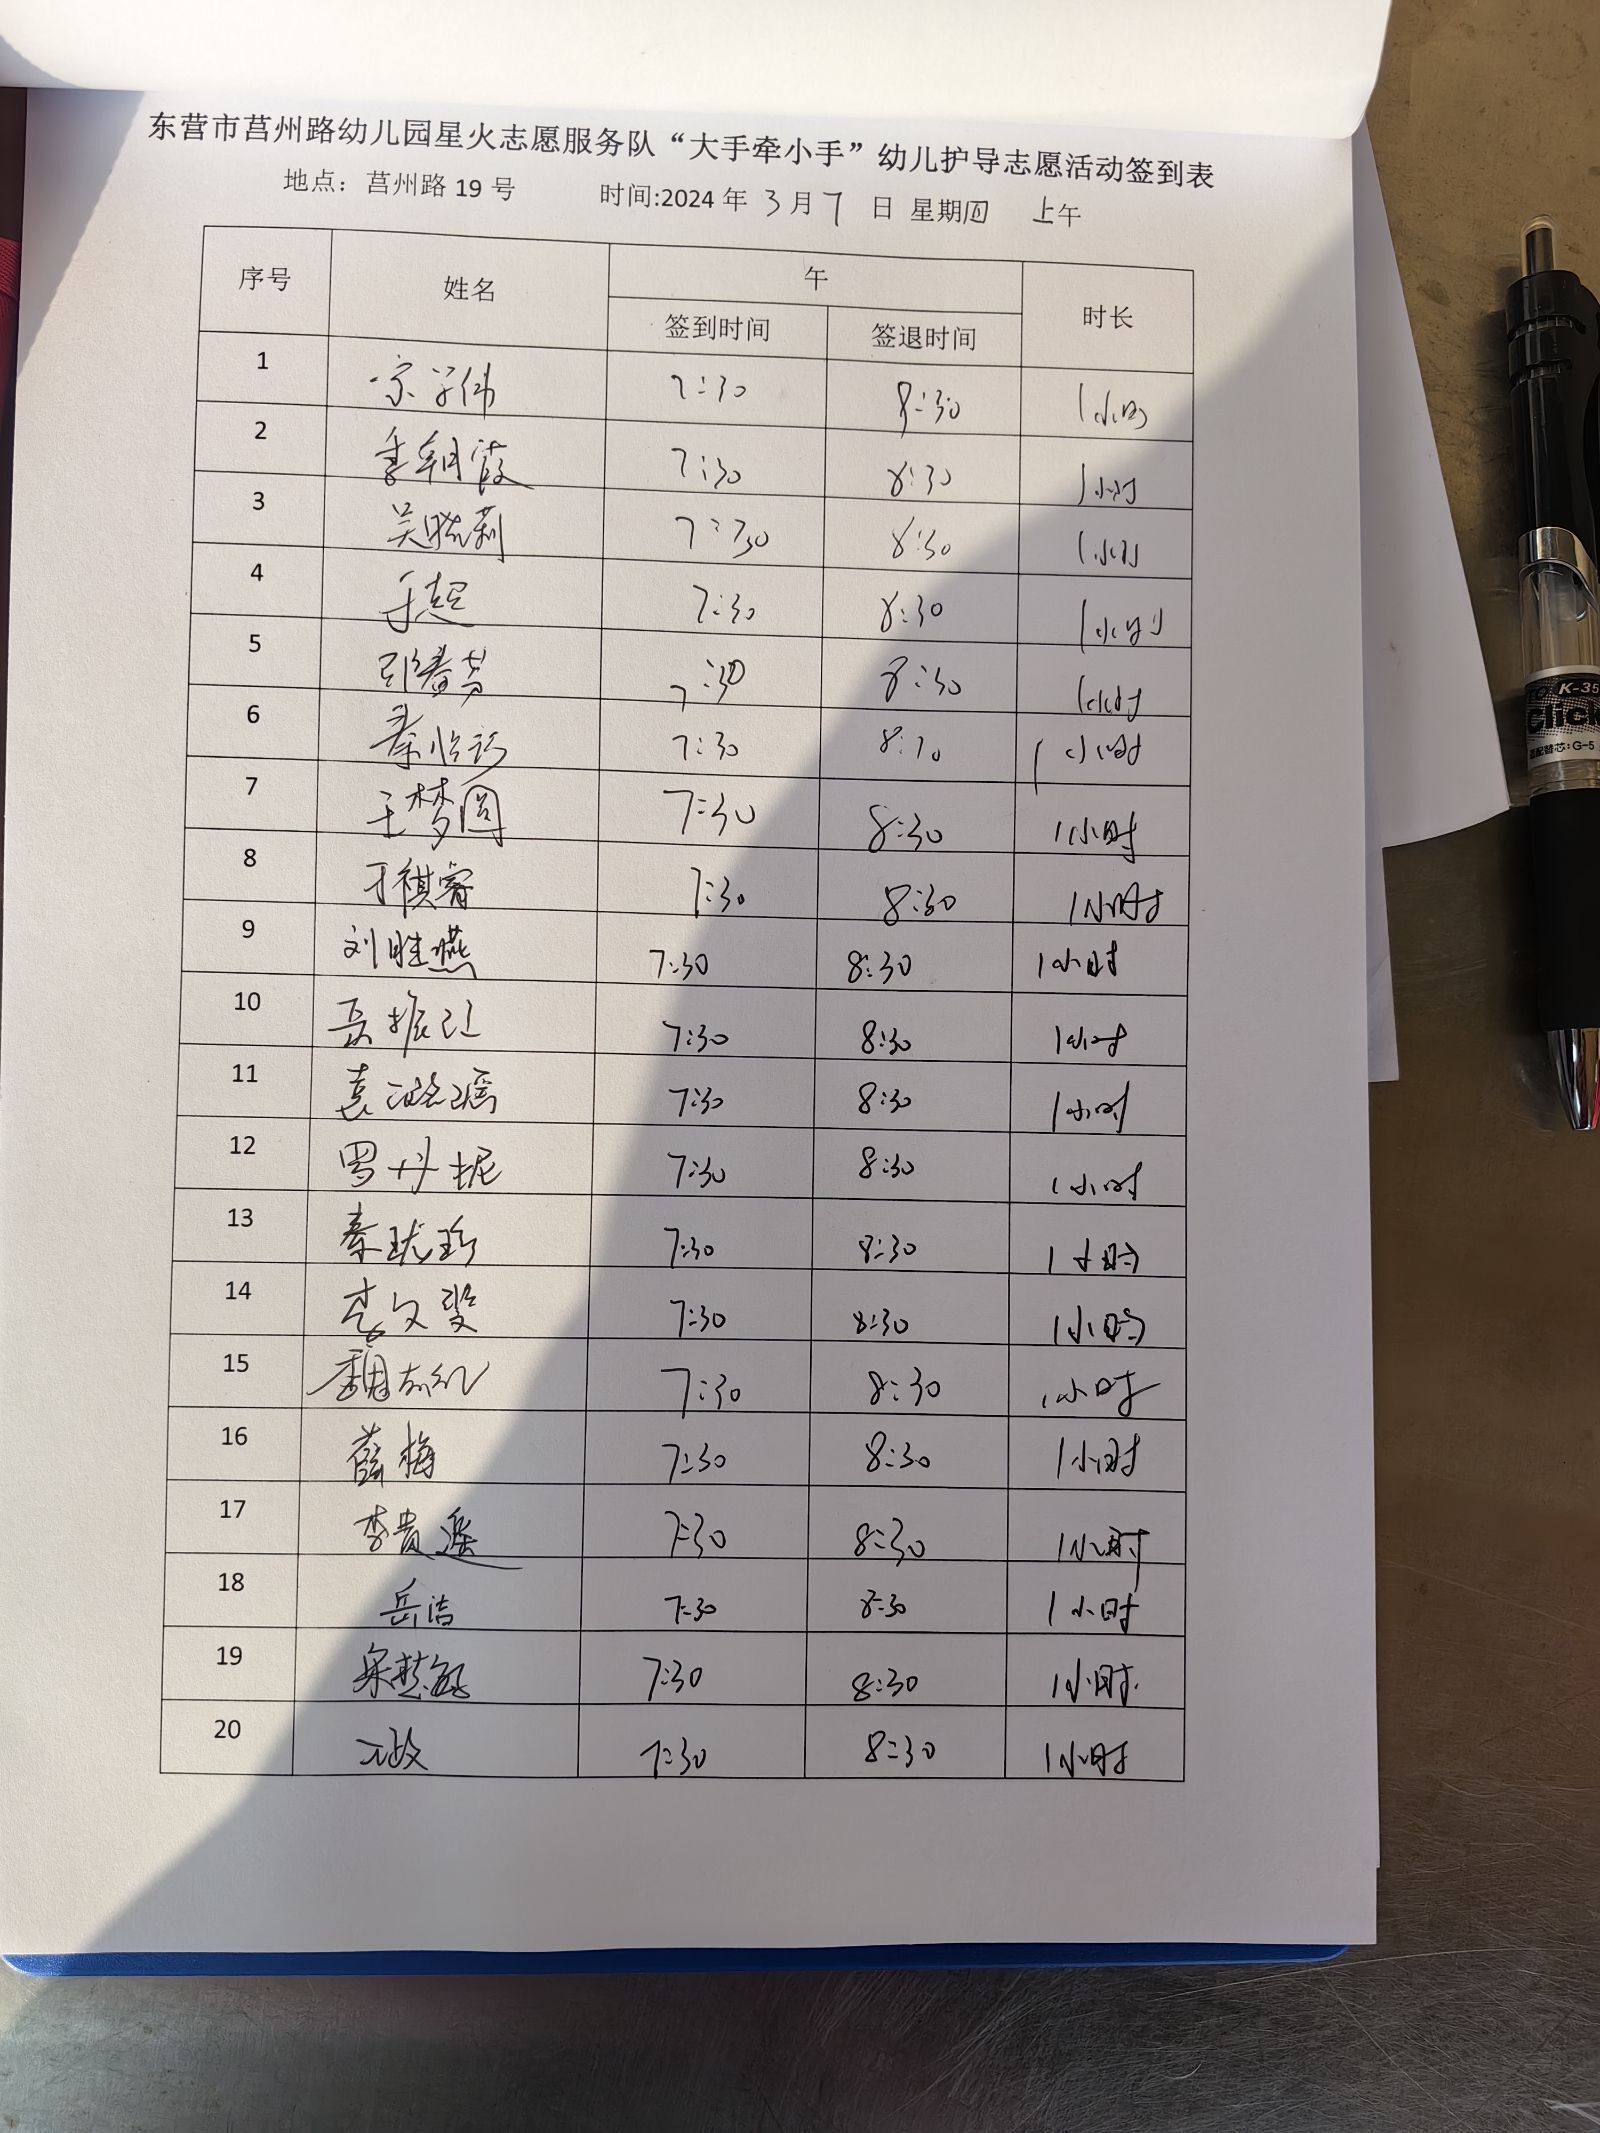 东营市莒州路幼儿园星火志愿服务队“大手牵小手”幼儿护导志愿活动签到表
地点：莒州路 19 号 时间:2024 年 3 月 7 日 星期四 上午
序号 姓名 午 时长
签到时间 签退时间
1 7:30 8:30 1小时
2 季朝霞 7:30 8:30 1小时
3 吴晓莉 7:30 8:30 1小时
4 于超 7:30 8:30 1小时
5 7:30 8:30 1小时
6 7:30 8:30 1小时
7 王梦圆 7:30 8:30 1小时
8 于祺睿 7:30 8:30 1小时
9 刘胜燕 7:30 8:30 1小时
10 7:30 8:30 1小时
11 袁潞瑶 7:30 8:30 1小时
12 罗丹妮 7:30 8:30 1小时
13 秦珑珍 7:30 8:30 1小时
14 7:30 8:30 1小时
15 7:30 8:30 1小时
16 薛梅 7:30 8:30 1小时
17 李贵遥 7:30 8:30 1小时
18 岳洁 7:30 8:30 1小时
19 宋楚毓 7:30 8:30 1小时
20 7:30 8:30 1小时
K-35
Click
适配替芯:G-5